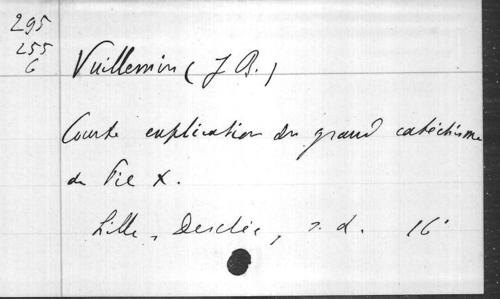 295
255
6
Vuillemin (J B.)
Courte explication du grand catéchisme
de Pie X.
Lille, Desclée, s. d. 16°